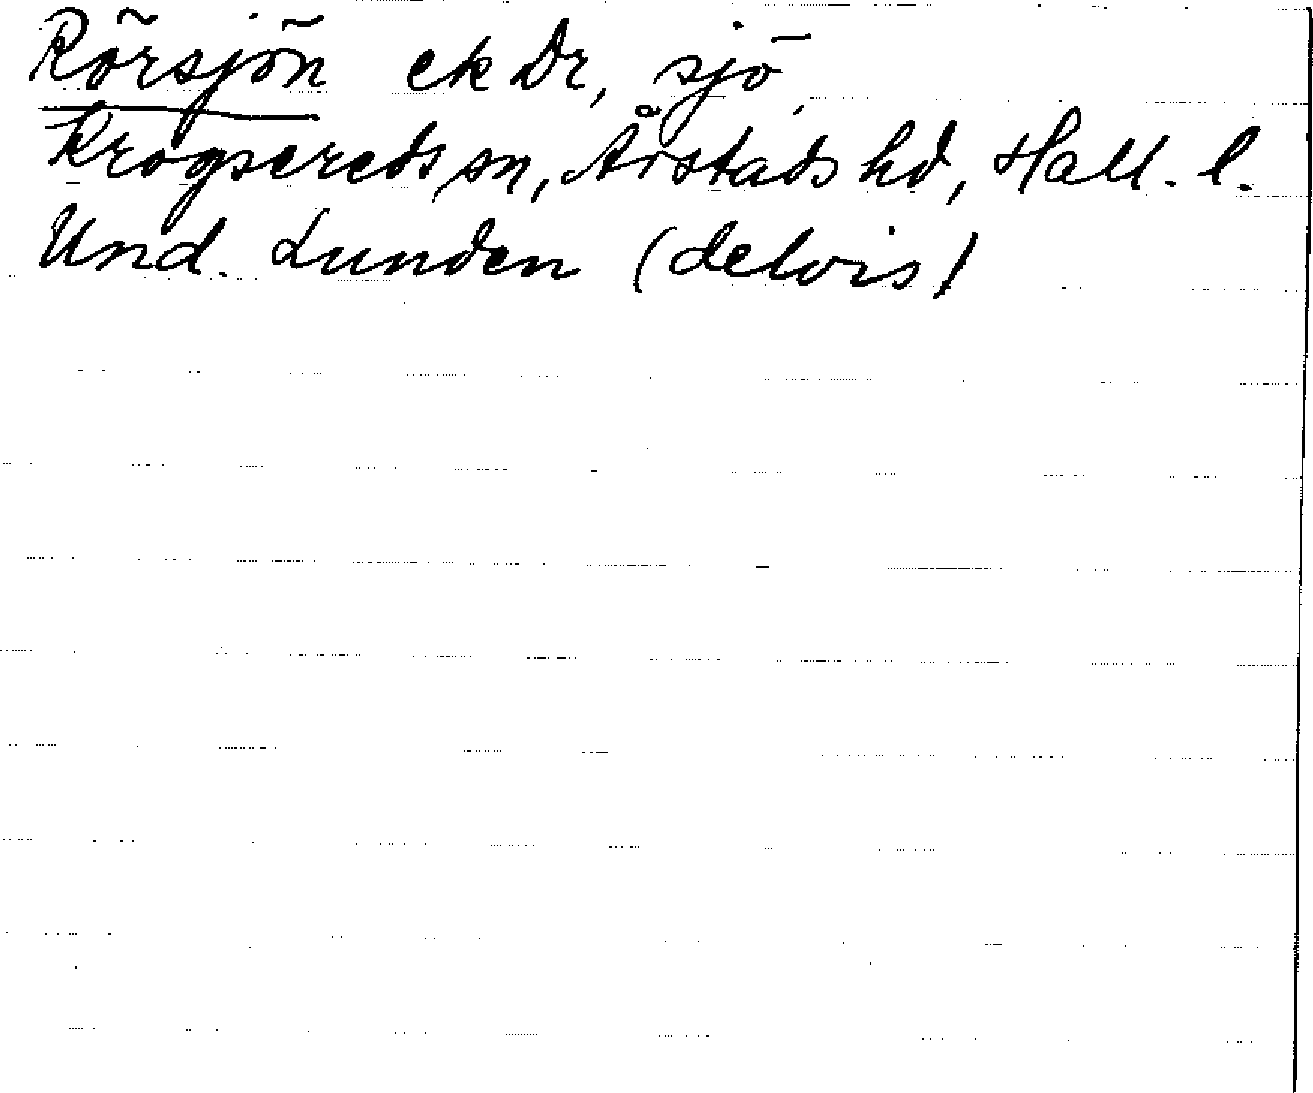 Rörsjön ek Dr, sjö
Krogsereds sn, Årstads hd, Hall. l.
Und. Lunden (delvis)